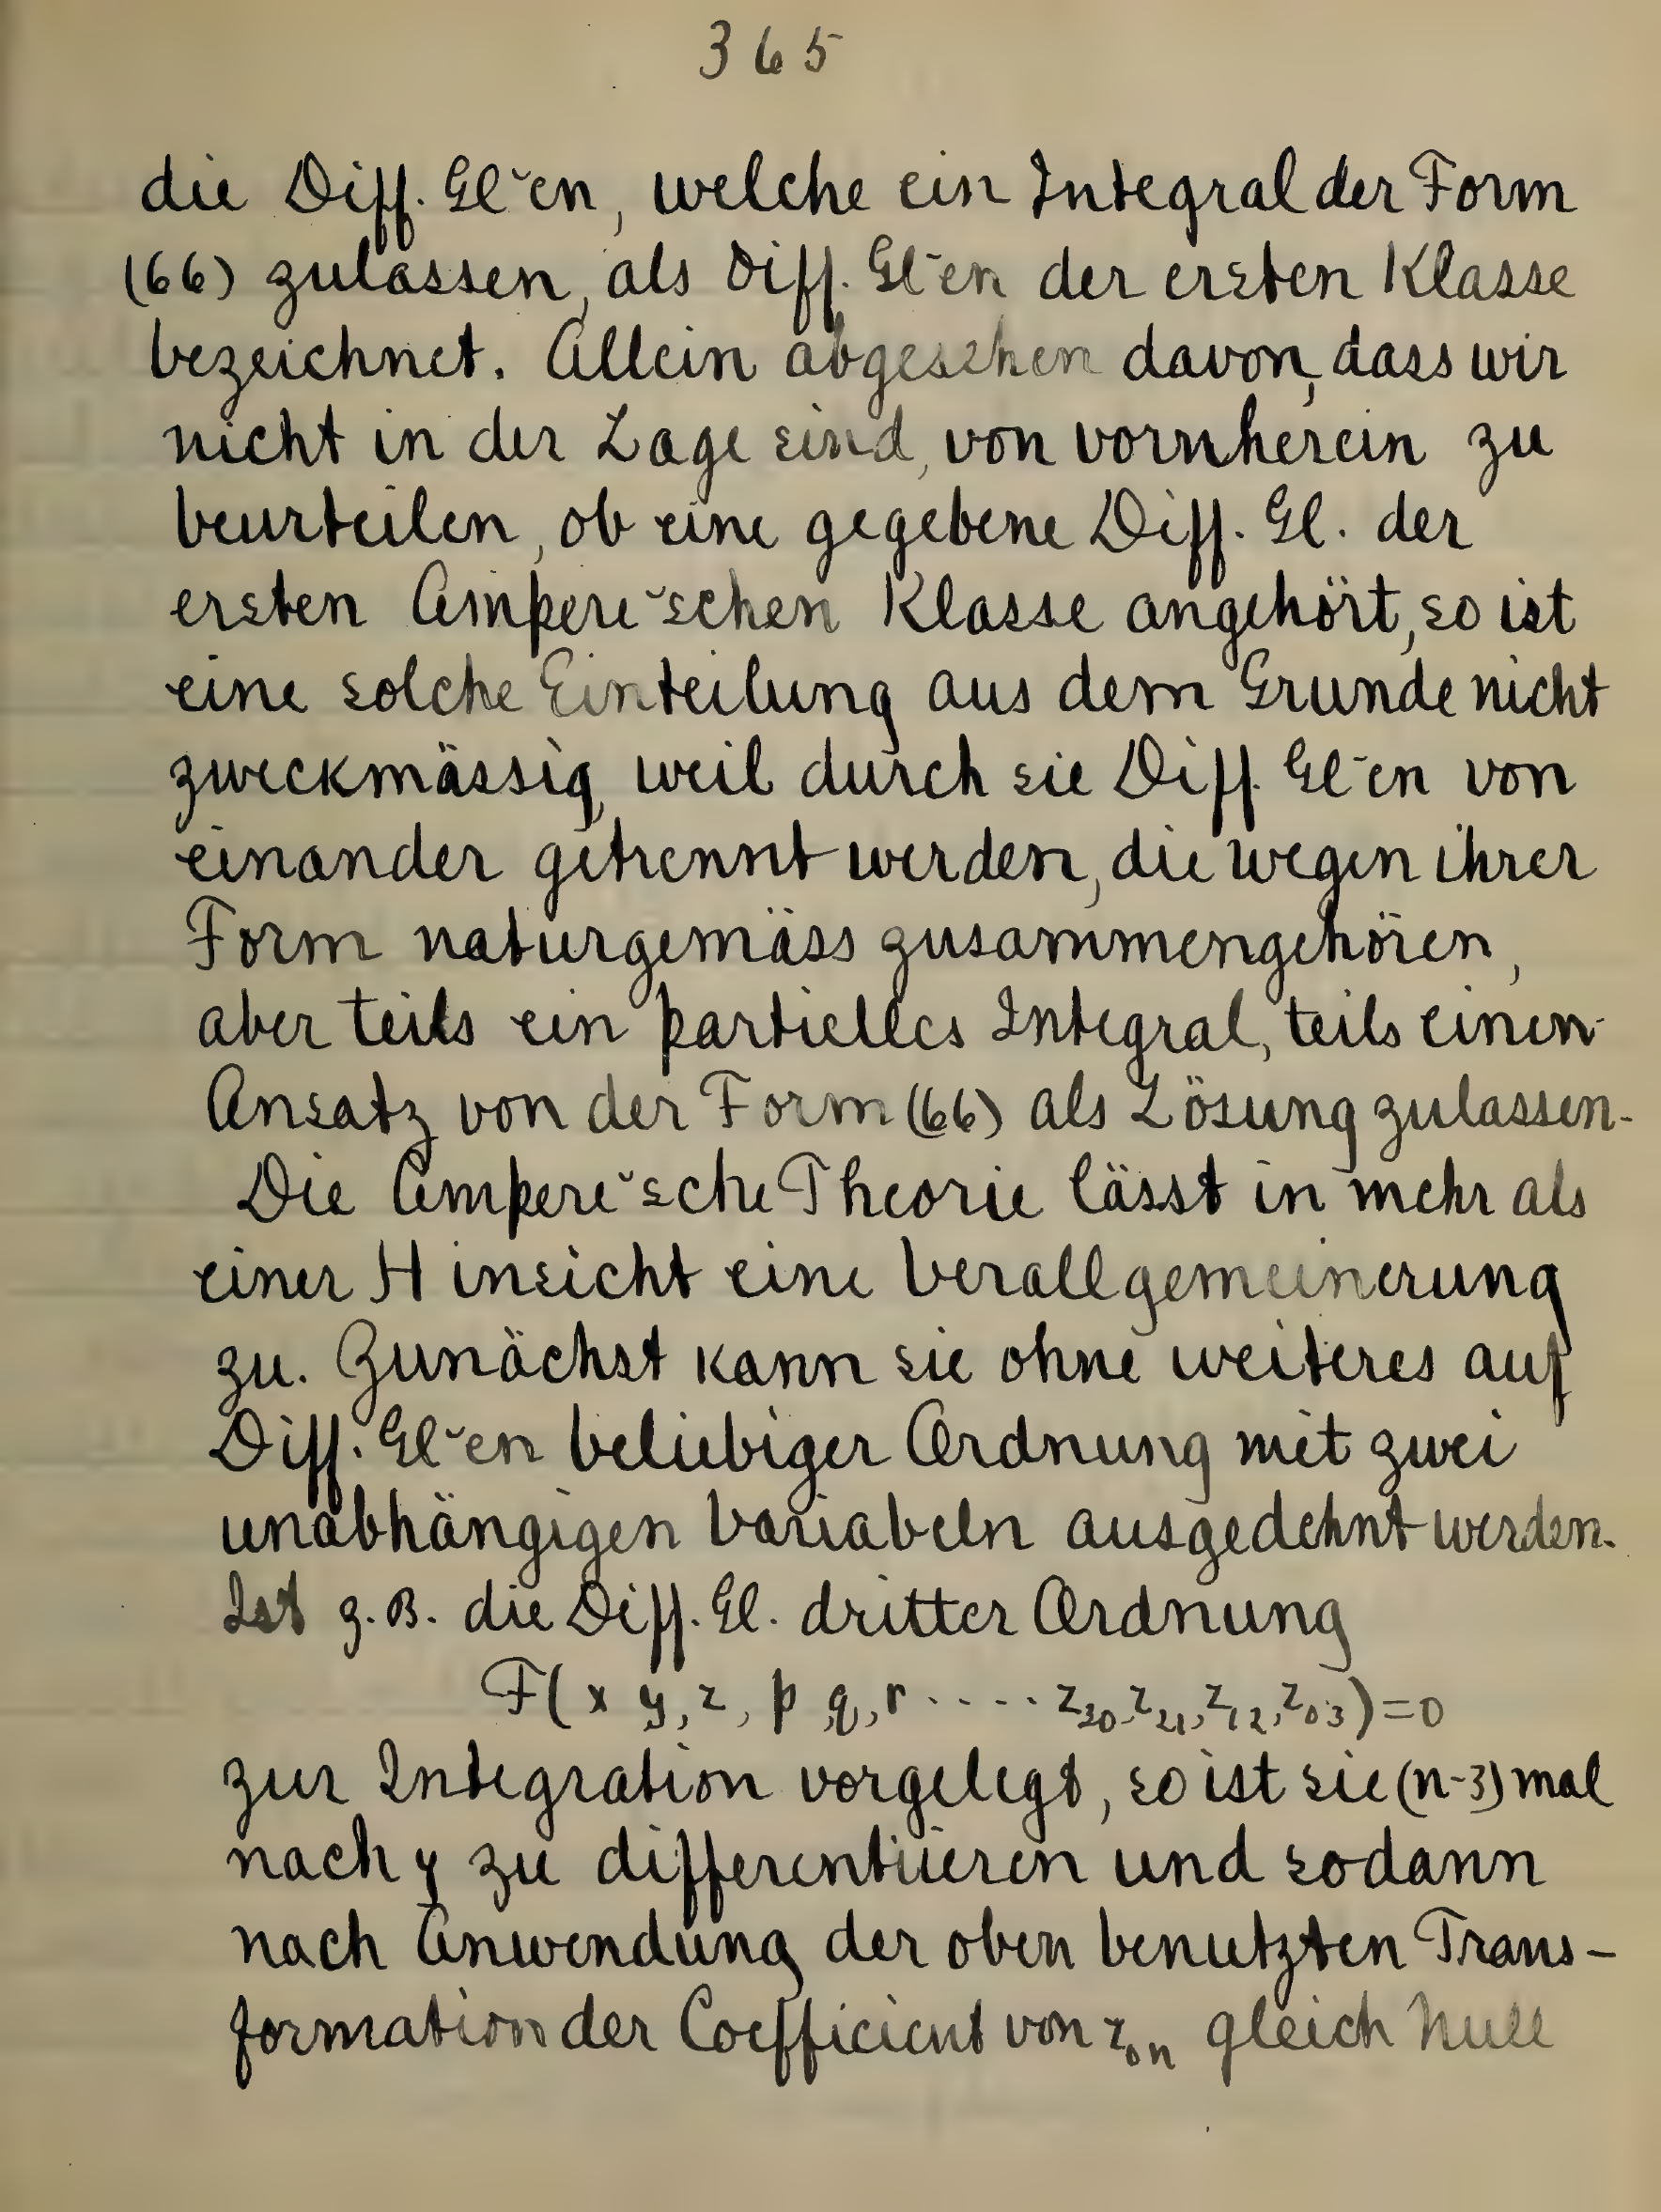 365
die Diff. Gl~en, welche ein Integral der Form
(66) zulassen, als Diff. Gl-en der ersten Klasse
bezeichnet. Allein abgesehen davon, dass wir
nicht in der Lage sind, von vornherein zu
beurteilen, ob eine gegebene Diff. Gl. der
ersten Ampere~schen Klasse angehört, so ist
eine solche Einteilung aus dem Grunde nicht
zweckmässig, weil durch sie Diff. Gl-en von
einander getrennt werden, die wegen ihrer
Form naturgemäss zusammengehören,
aber teils ein partielles Integral, teils einen
Ansatz von der Form (66) als Lösung zulassen.
Die Ampere~sche Theorie lässt in mehr als
einer Hinsicht eine Verallgemeinerung
zu. Zunächst kann sie ohne weiteres auf
Diff. Gl~en beliebiger Ordnung mit zwei
unabhängigen Variabeln ausgedehnt werden.
Ist z.B. die Diff. Gl. dritter Ordnung
F(x y, z, p, q, r ····· z₃₀, z₂₁, z₁₂, z₀₃) = 0
zur Integration vorgelegt, so ist sie (n-3) mal
nach y zu differentiieren und sodann
nach Anwendung der oben benutzten Trans-
formation der Coefficient von z₀ₙ gleich Null